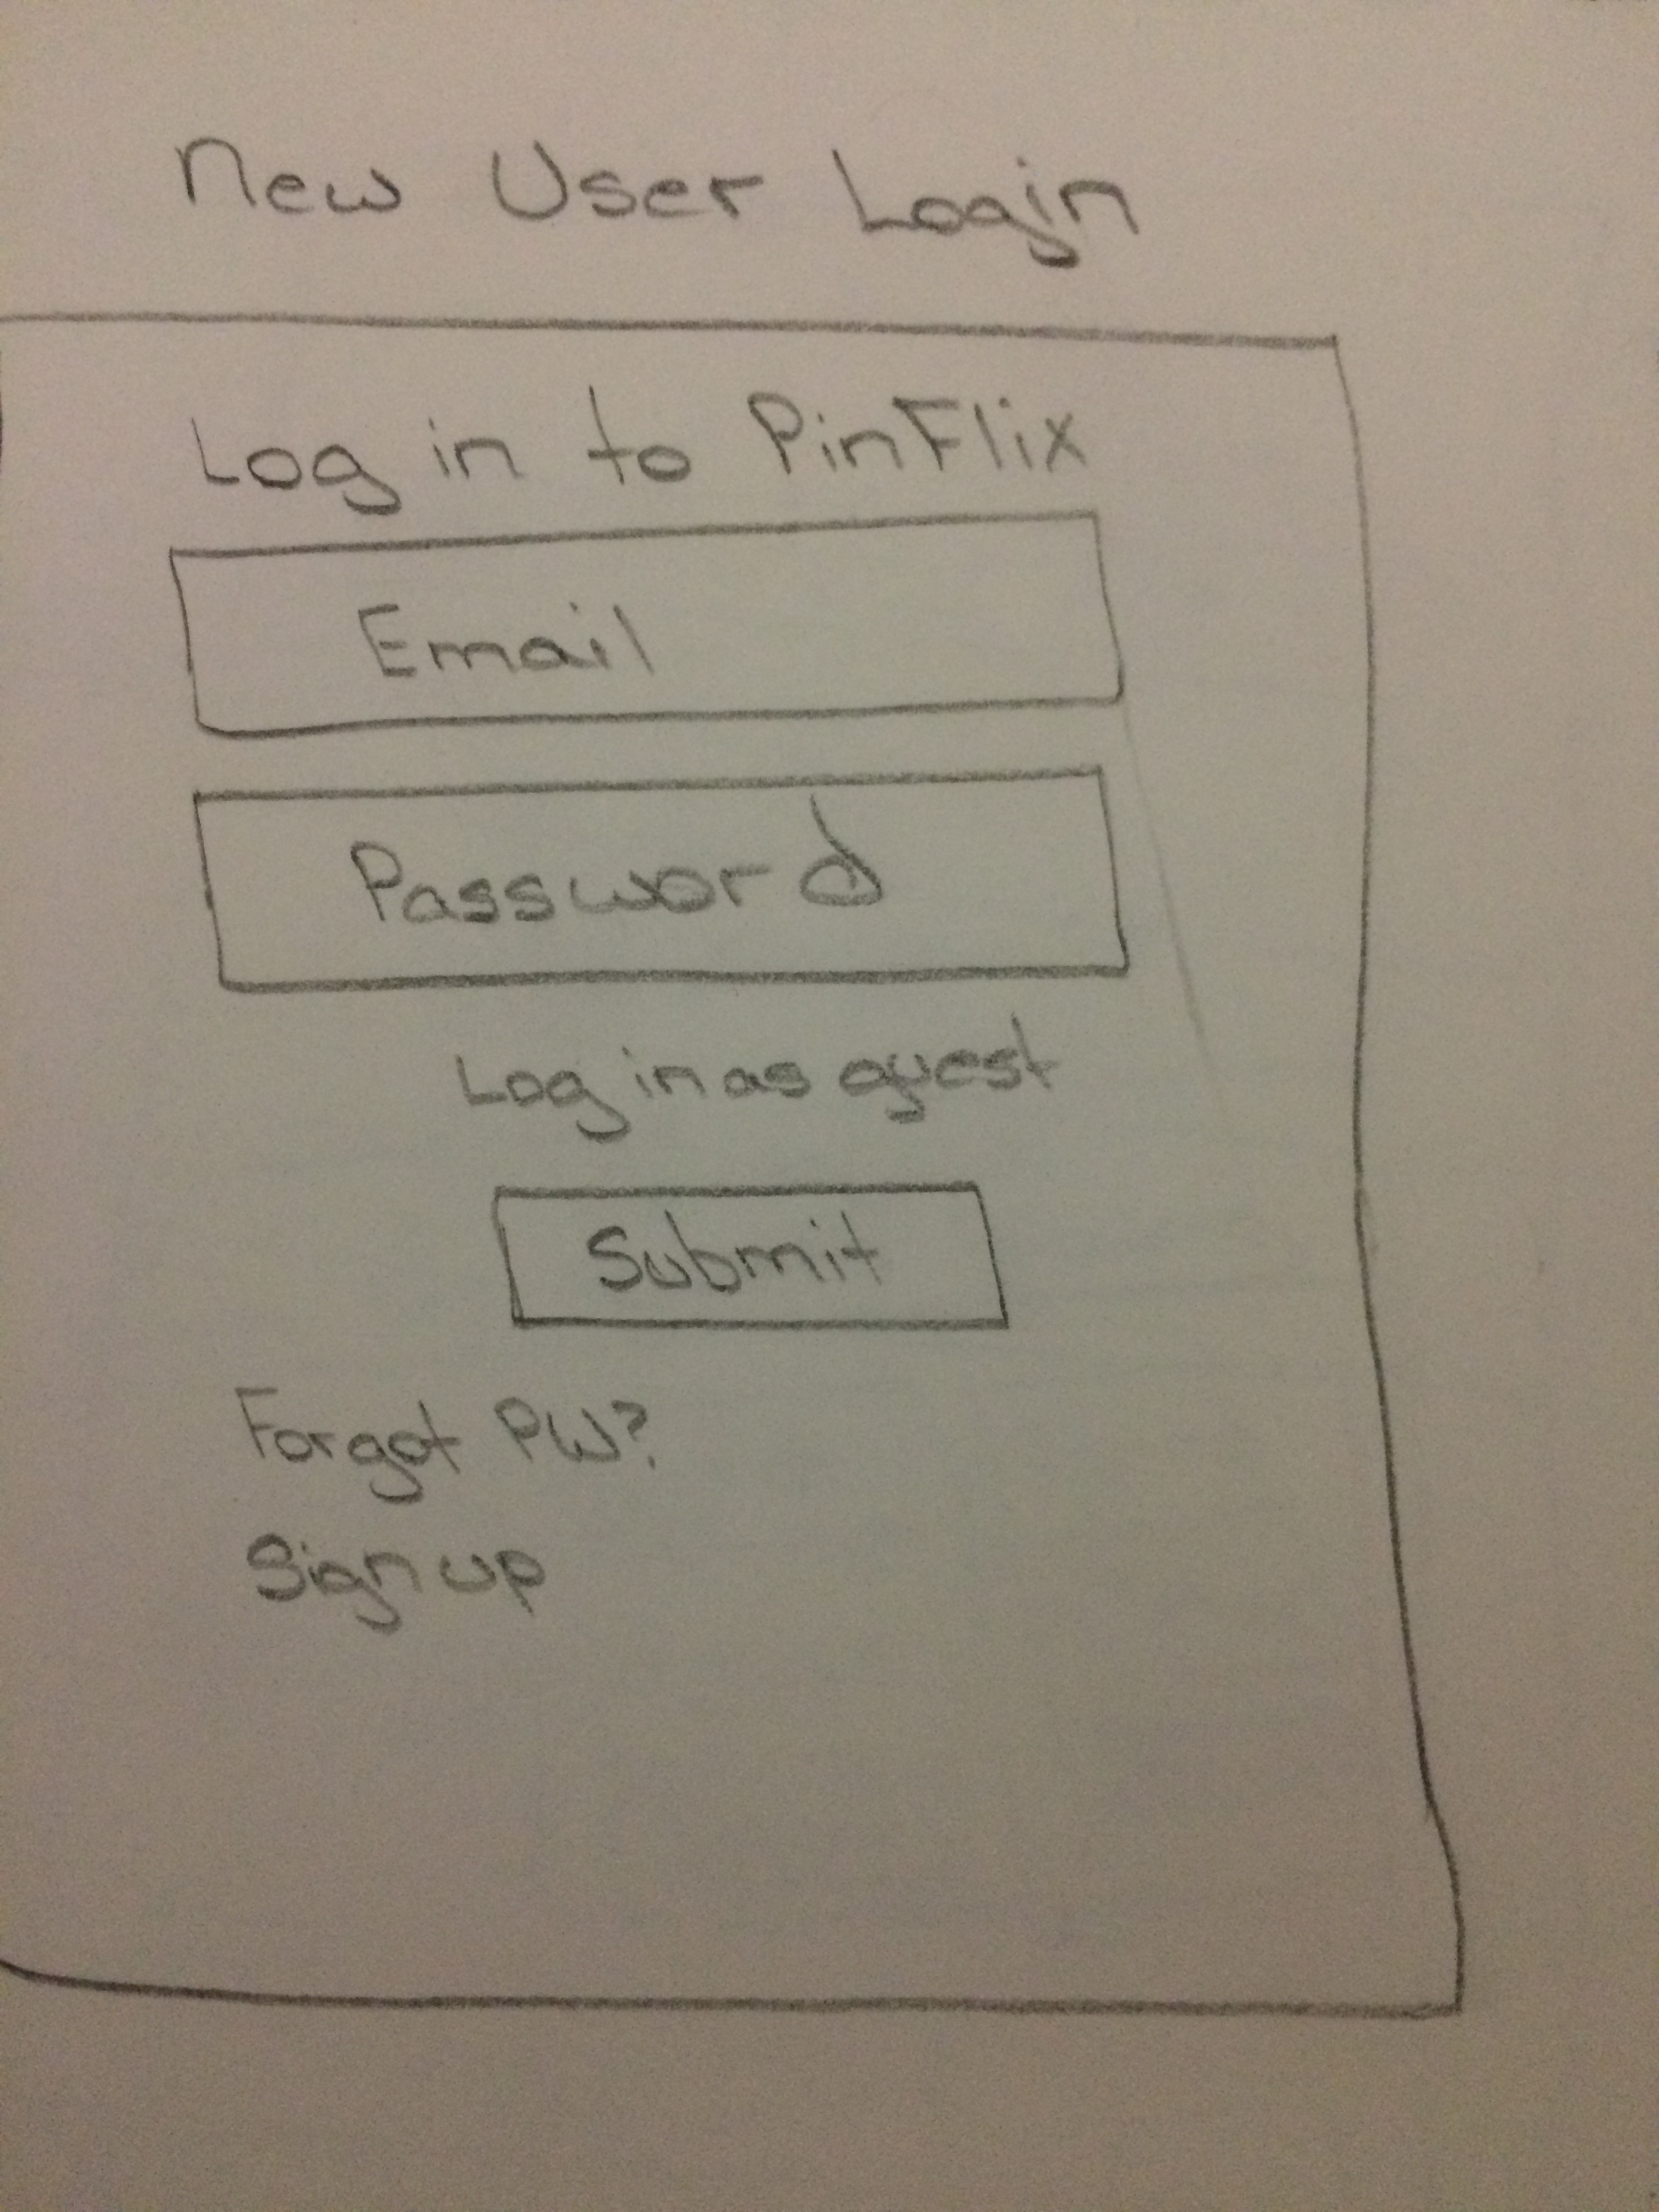 New User Login
Log in to PinFlix
Email
Password
Log in as guest
Submit
Forgot PW?
Sign up